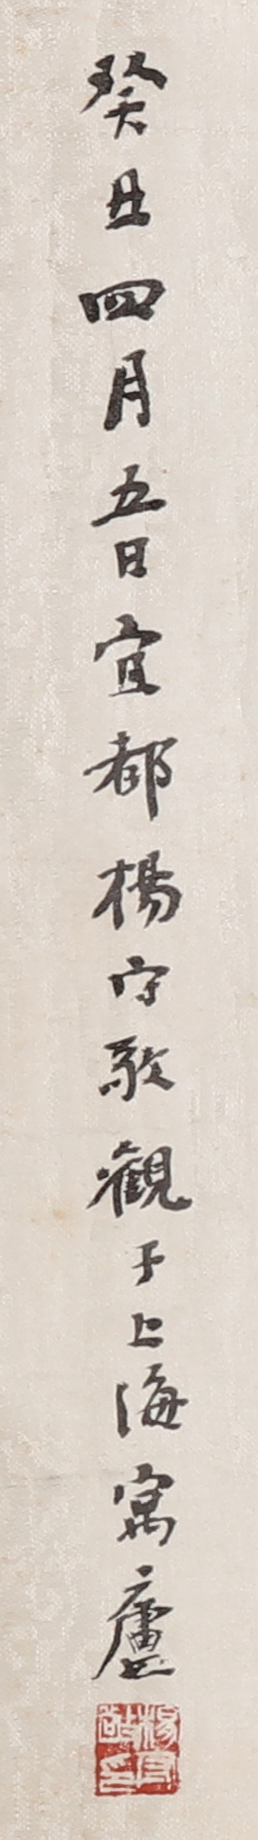 癸丑四月五日宜都楊守敬觀于上海寓廬
楊守敬印